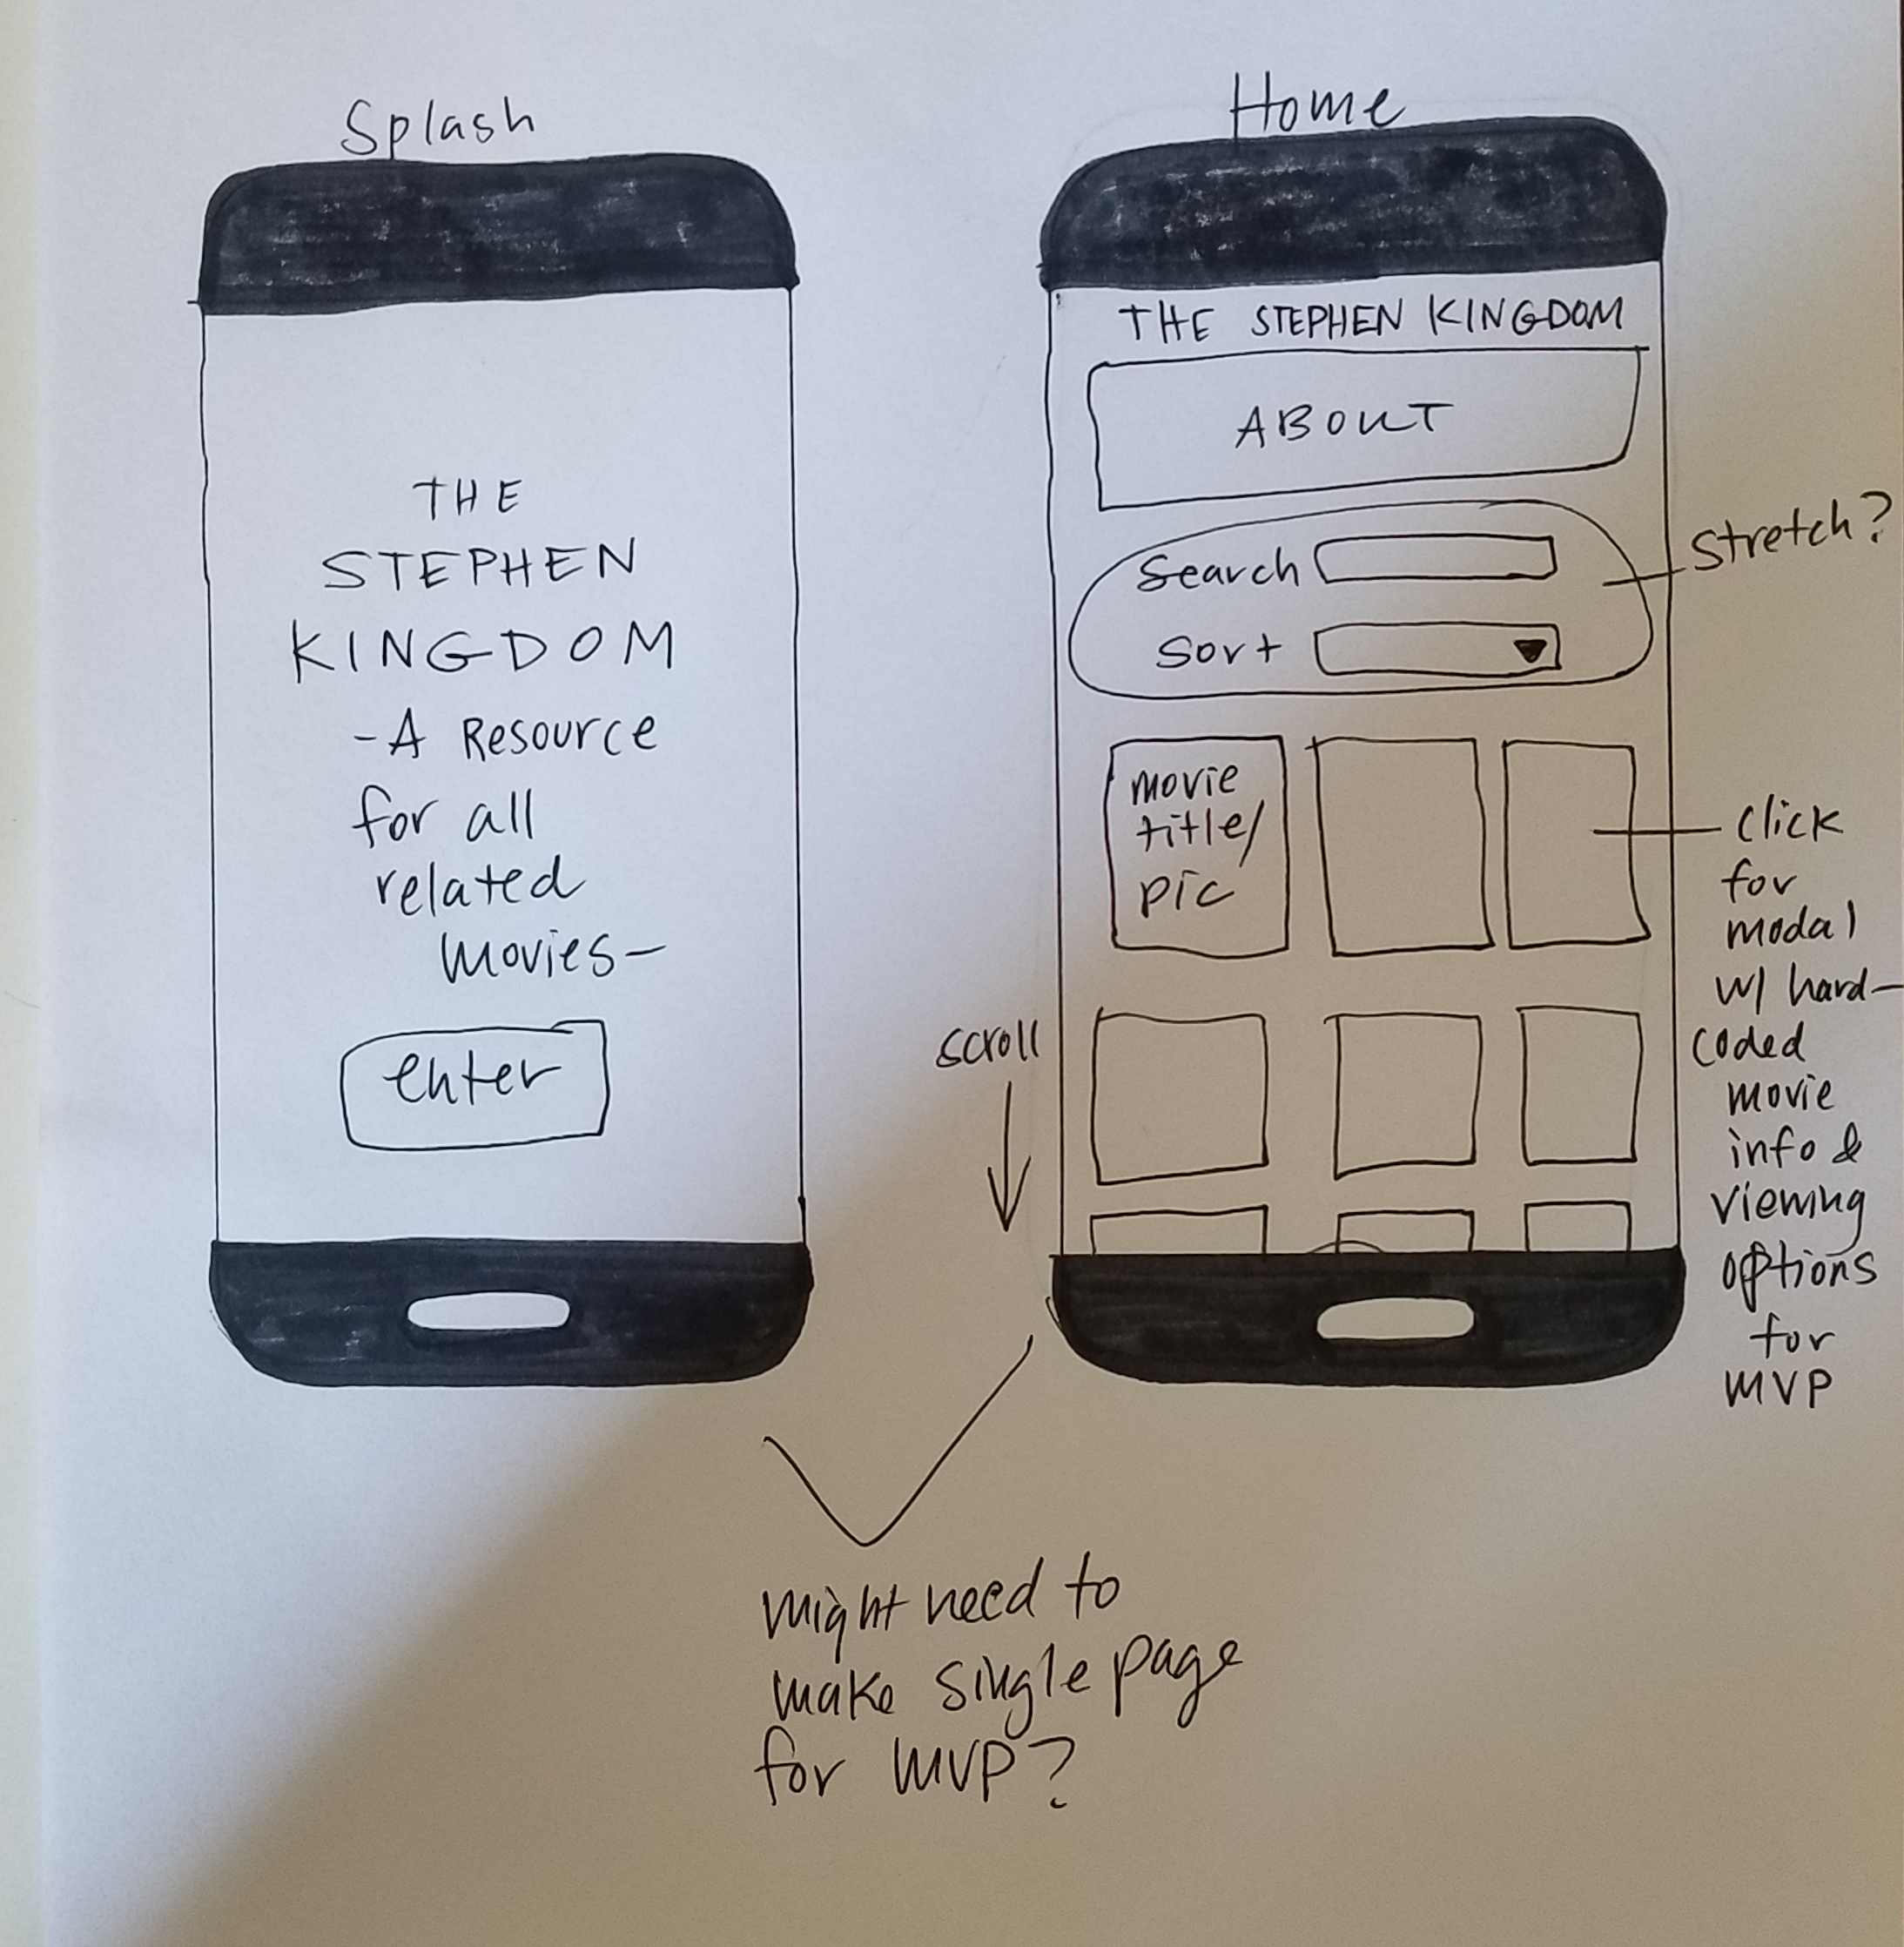 Splash
THE
STEPHEN
KINGDOM
-A Resource
for all
related
movies-
enter
Home
THE STEPHEN KINGDOM
ABOUT
Search
Sort
Stretch?
movie
title/
pic
click
for
modal
w/ hard-
coded
movie
info &
viewing
options
for
MVP
scroll
might need to
make single page
for MVP?